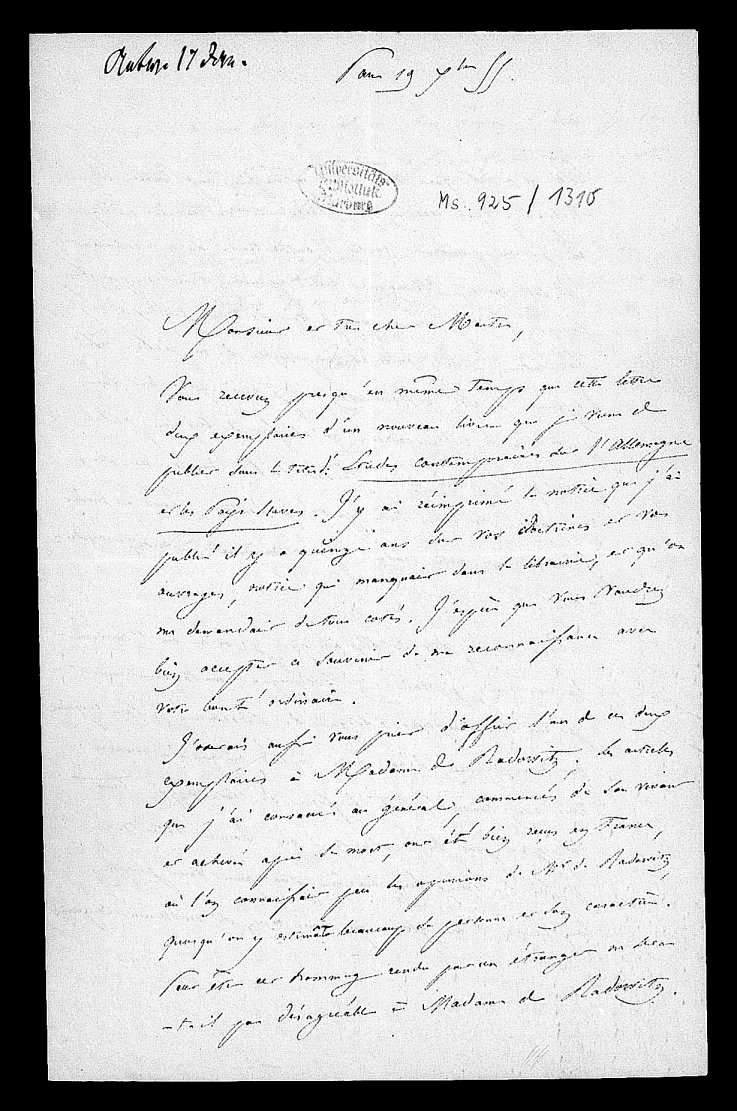 Antw. 17 Jan.
Paris 19 Xbre 55.
Universitäts
Bibliothek
Marburg
Ms. 925 / 1316
Monsieur et très cher Maître,
Vous recevrez presqu'en même temps que cette lettre
deux exemplaires d'un nouveau livre que je viens de
publier sous le titre: Etudes contemporaines sur l'Allemagne
et les Pays Slaves. J'y ai réimprimé la notice que j'ai
publié il y a quinze ans sur vos doctrines et vos
ouvrages, notice qui manquait dans la librairie, et qu'on
me demandait de tous cotés. J'espère que vous voudrez
bien accepter ce souvenir de ma reconnaissance avec
votre bonté ordinaire.
J'oserais aussi vous prier d'offrir l'un de ces deux
exemplaires à Madame de Radowitz. Les articles
que j'ai consacrés au général, commencés de son vivant
et achevés après sa mort, ont été bien reçus en France,
où l'on connaissait peu les opinions de Mr de Radowitz,
quoiqu'on y estimât beaucoup sa personne et son caractère.
Peut être cet hommage rendu par un étranger ne sera
-t-il pas désagréable à Madame de Radowitz.